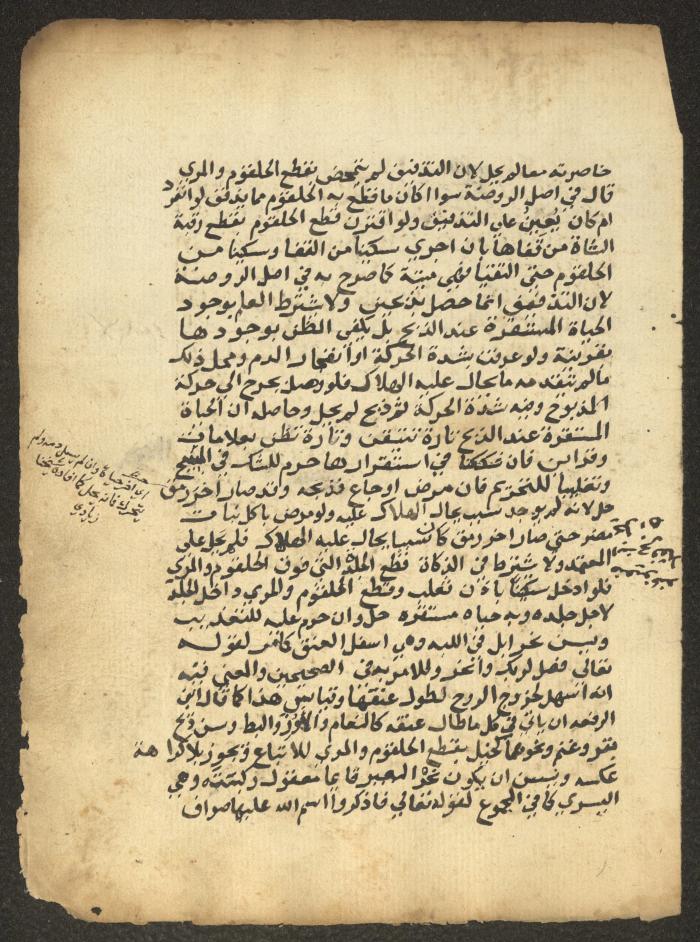 خاصرته معا لم يحل لان التذفيق لم يتمحض بقطع الحلقوم والمري
قال في اصل الروضة سوا اكان ما قطع به الحلقوم مما يذفق لو انفرد
ام كان يعين علي التذفيق ولو اقترن قطع الحلقوم بقطع رقبة
الشاة من قفاها بان اجري سكينا من القفا وسكينا من
الحلقوم حتي التقيا فهي ميتة كما صرح به في اصل الروضة
لان التذفيق انما حصل بذبحين ولا يشترط العلم بوجود
الحياة المستقرة عند الذبح بل يكفي الظن بوجودها
بقرينة ولو عرفت بشدة الحركة او انفجار الدم ومحل ذلك
ما لم يتقدمه ما يحال عليه الهلاك فلو وصل بجرح الي حركة
المذبوح وفيه شدة الحركة ثم ذبح لم يحل وحاصله ان الحياة
المستقرة عند الذبح تارة تتيقن وتارة تظن بعلامات
وقراين فان شككنا في استقرارها حرم للشك في المبيح
وتغليبا للتحريم فان مرض او جاع فذبحه وقد صار اخر رمق
حل لانه لم يوجد سبب يحال الهلاك عليه ولو مرض باكل نبات
مضر حتي صار اخر رمق كان سببا يحال عليه الهلاك فلم يحل علي
المعتمد ولا يشترط في الذكاة قطع الجلدة التي فوق الحلقوم والمري
فلو ادخل سكينا باذن ثعلب وقطع الحلقوم والمري داخل الجلد
لاجل جلده وبه حياه مستقره حل وان حرم عليه للتعذيب
ويسن نحر ابل في اللبه وهي اسفل العنق كما مر لقوله
تعالي فصل لربك وانحر وللامر به في الصحيحين والمعني فيه
انه اسهل لخروج الروح لطول عنقها وقياس هذا كما قال ابن
الرفعه ان ياتي في كل ما طال عنقه كالنعام والاوز والبط ويسن ذبح
بقر وغنم ونحوهما كخيل بقطع الحلقوم والمري للاتباع ويجوز بلا كراهة
عكسه ويسن ان يكون نحر البعير قايما معقول ركبته وهي
اليسري كما في المجموع لقوله تعالي فاذكروا اسم الله عليها صواف
اي اخر حياة وان لم يسل دمه ولم
يتحرك فانه يحل كما افاده شيخنا
زيادي